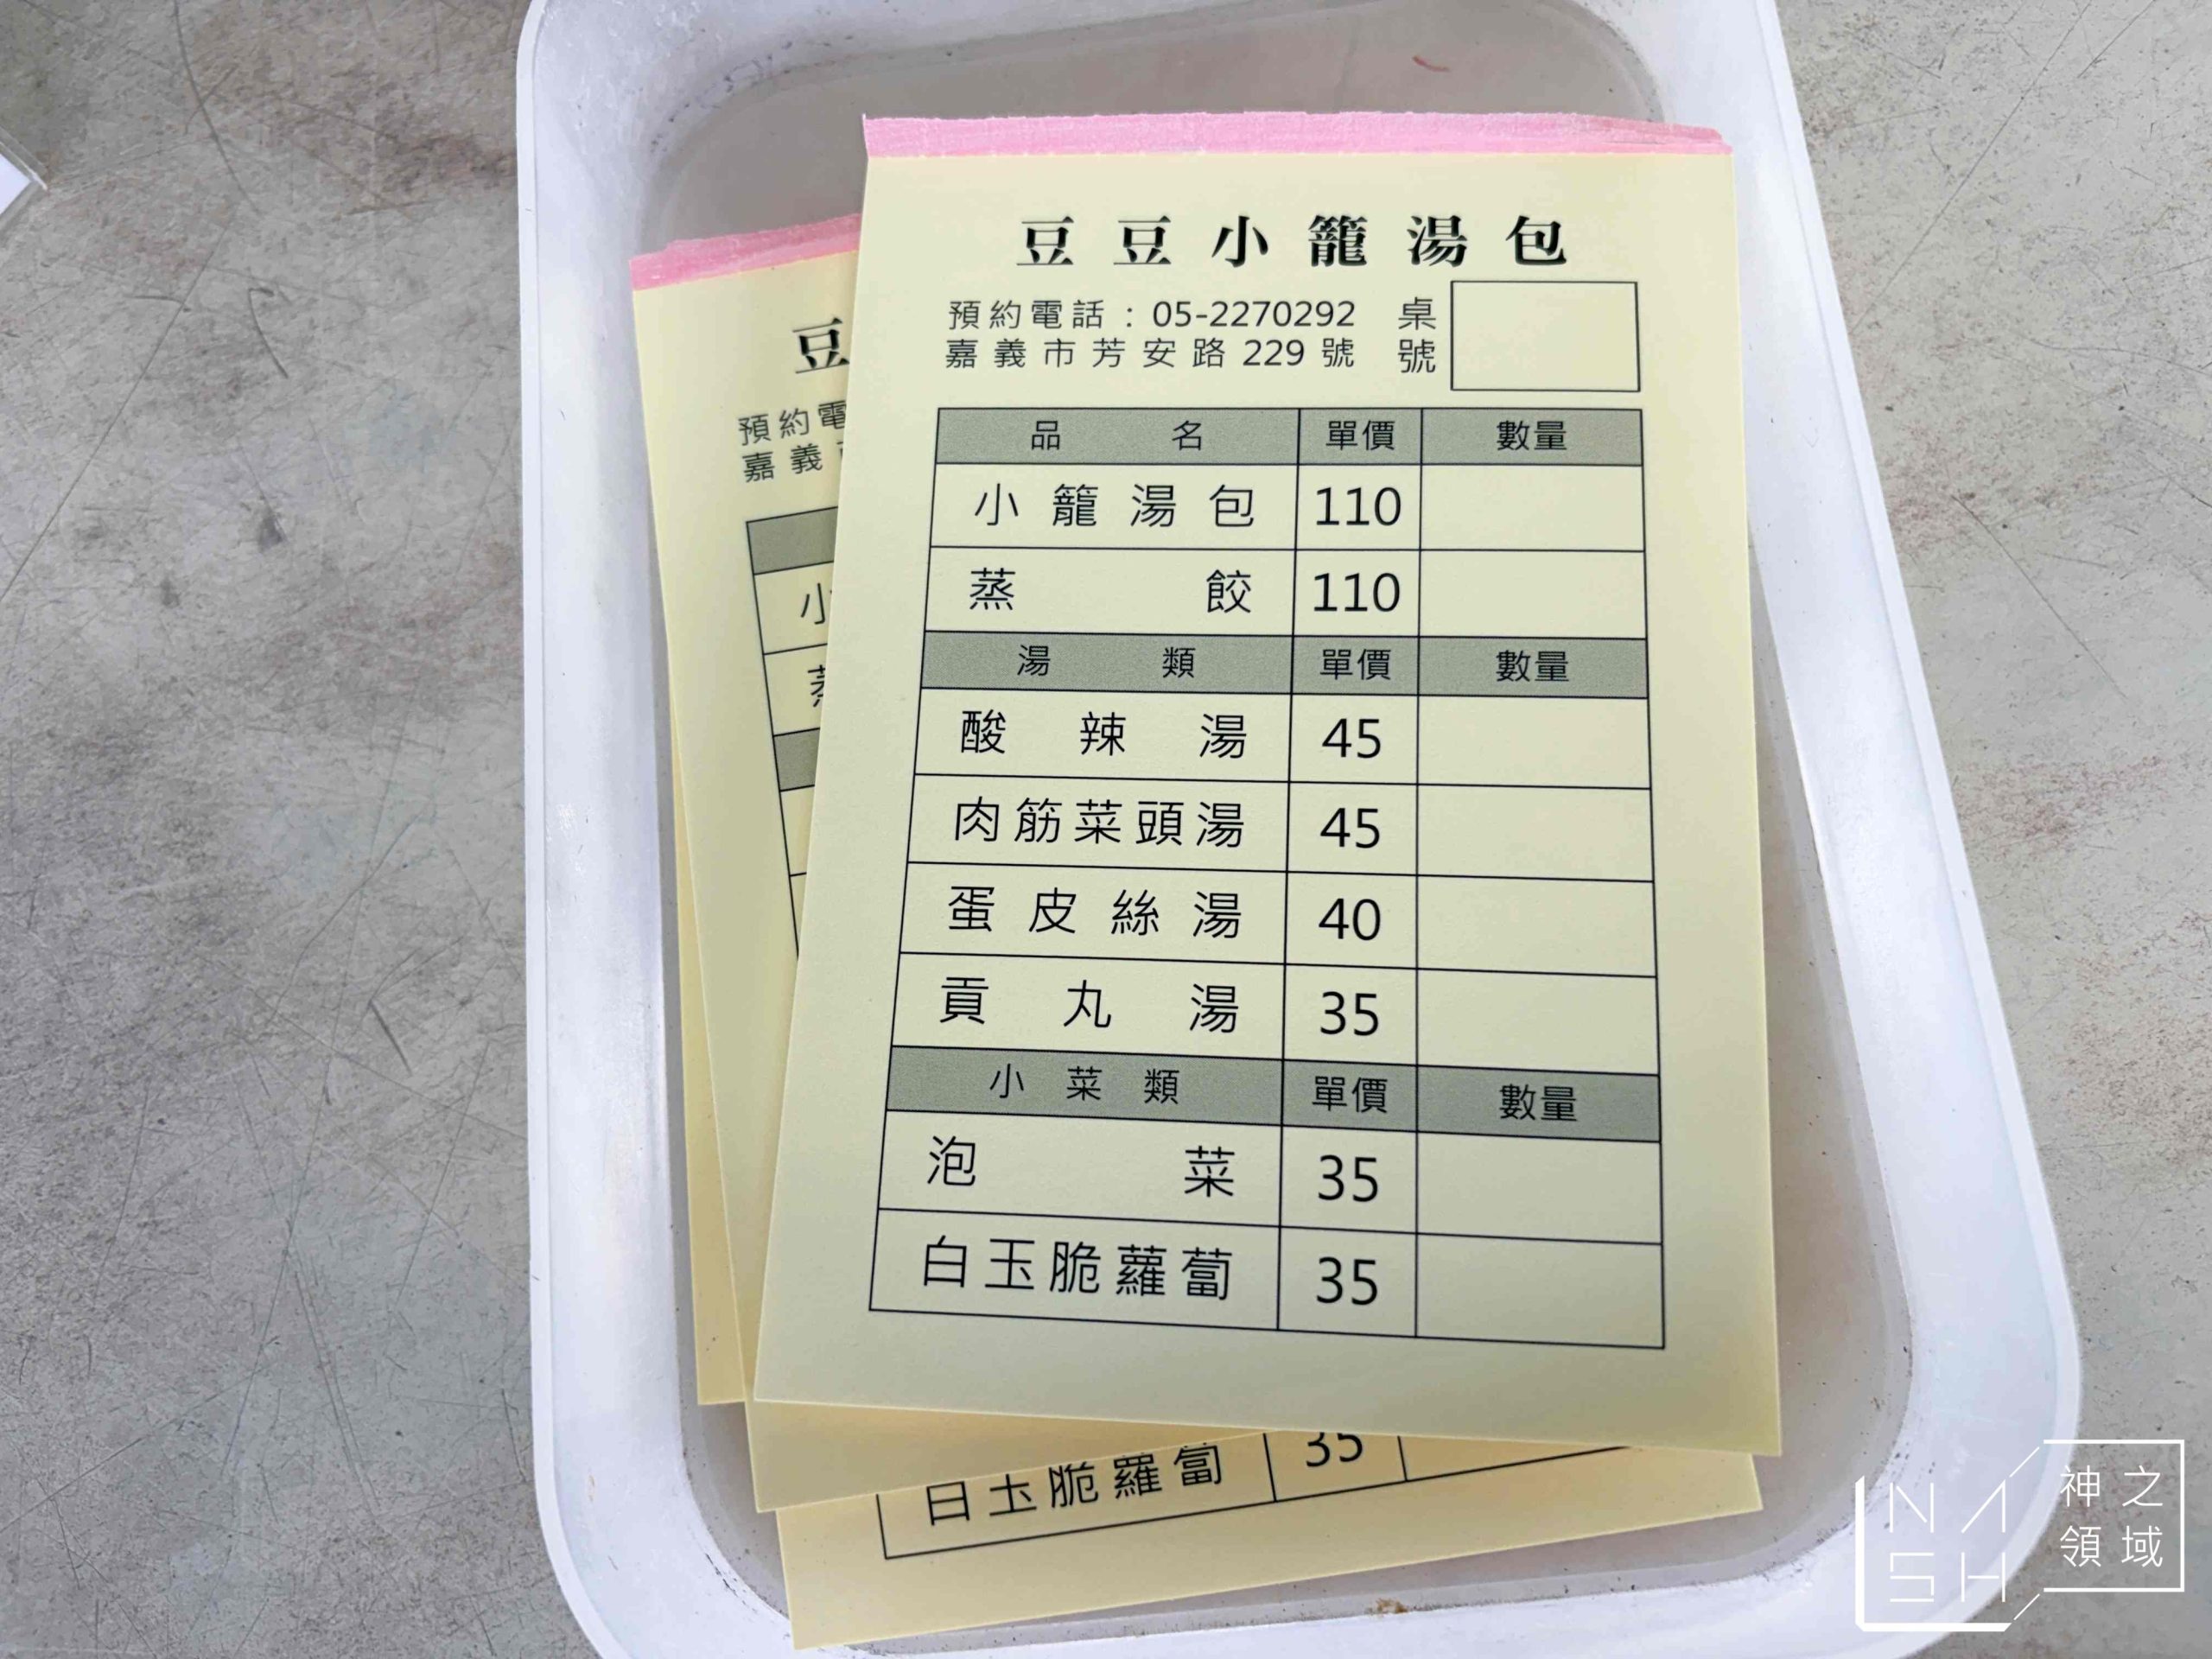 豆豆小籠湯包
預約電話：05-2270292 桌號
嘉義市芳安路229號
品名 單價 數量
小籠湯包 110
蒸餃 110
湯類 單價 數量
酸辣湯 45
肉筋菜頭湯 45
蛋皮絲湯 40
貢丸湯 35
小菜類 單價 數量
泡菜 35
白玉脆蘿蔔 35
豆
預約電
嘉義
小
白玉脆蘿蔔 35
NASH 神之領域